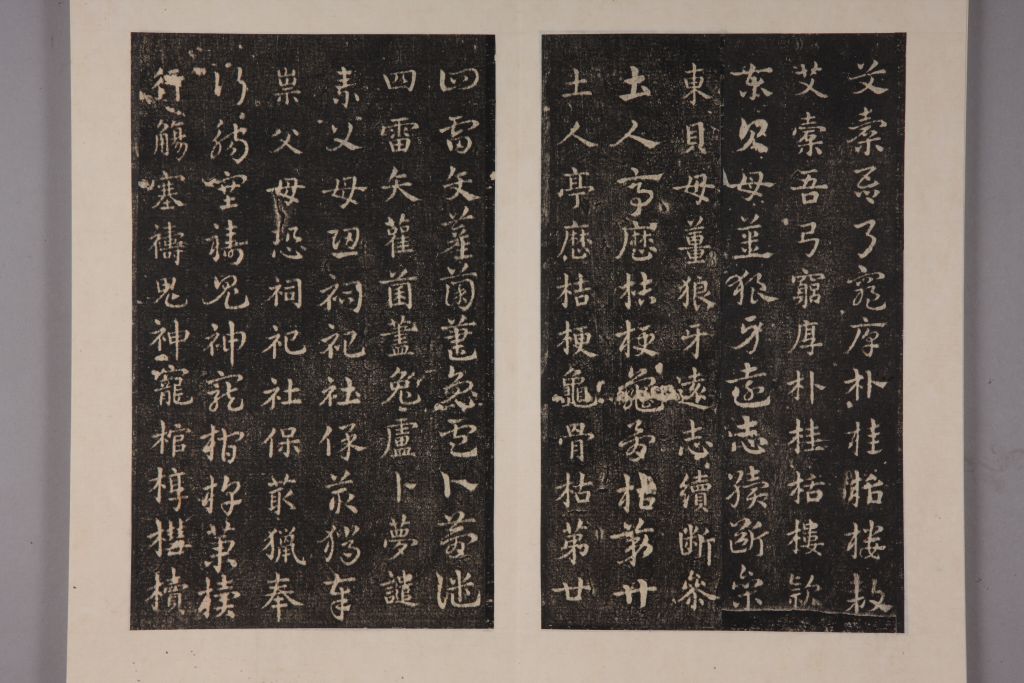 艾橐吾弓窮厚朴桂栝樓款
艾橐吾弓窮厚朴桂栝樓款
東貝母薑狼牙遠志續斷參
東貝母薑狼牙遠志續斷參
土人亭歷桔梗龜骨枯第廿
土人亭歷桔梗龜骨枯第廿
四雷矢雚菌藎兔盧卜夢譴
四雷矢雚菌藎兔盧卜夢譴
祟父母恐祠祀社保菆獵奉
祟父母恐祠祀社保菆獵奉
行觴塞禱鬼神寵棺椁槥櫝
行觴塞禱鬼神寵棺椁槥櫝